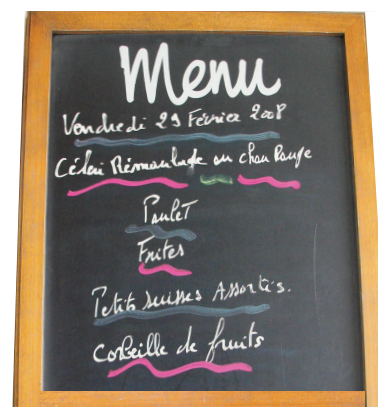 Menu
Vendredi 29 Février 2008
Céleri Rémoulade ou chou Rouge
Poulet
Frites
Petits suisses Assortis.
Corbeille de fruits